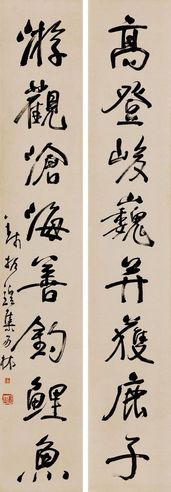 高登峻巍并獲鹿子
游觀滄海善釣鯉魚
錢振鍠集易林